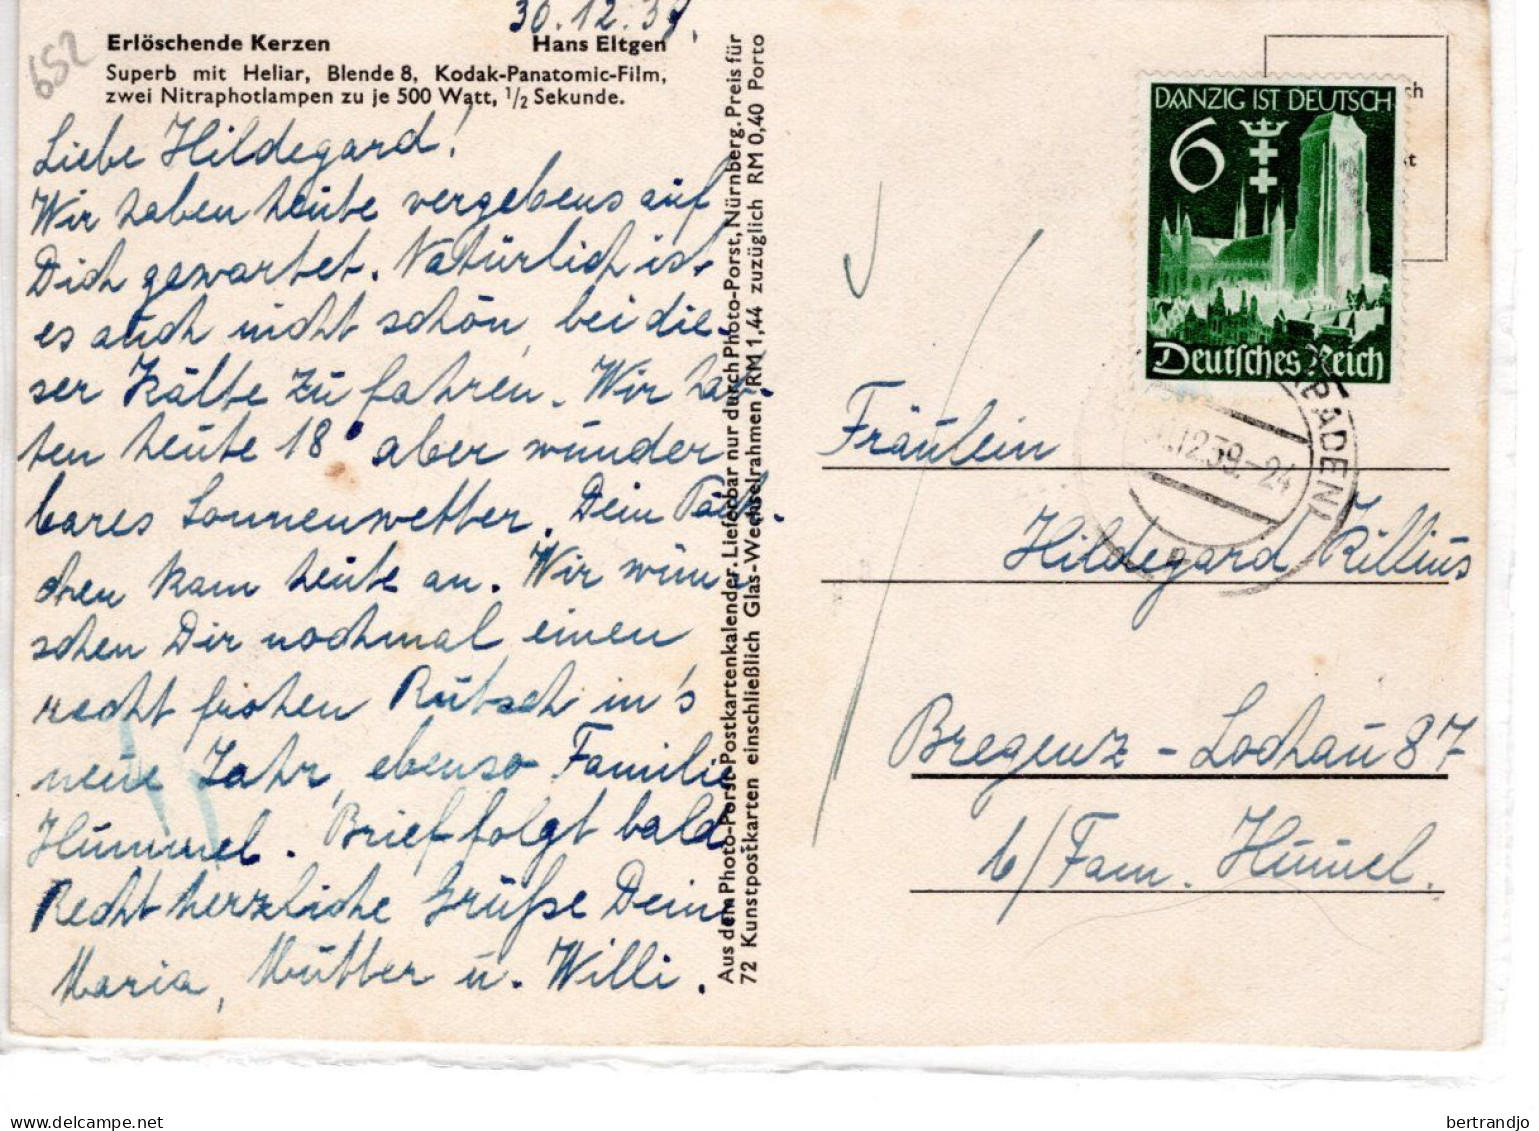 30.12.39.
652
Erlöschende Kerzen Hans Eltgen
Superb mit Heliar, Blende 8, Kodak-Panatomic-Film,
zwei Nitraphotlampen zu je 500 Watt, 1/2 Sekunde.
Liebe Hildegard!
Wir haben heute vergebens auf
Dich gewartet. Natürlich ist
es auch nicht schön, bei die-
ser Kälte zu fahren. Wir hat-
ten heute 18° aber wunder
bares Sonnenwetter. Dein Päck-
chen kam heute an. Wir wün
schen Dir nochmal einen
recht frohen Rutsch in's
neue Jahr, ebenso Familie
Hummel. Brief folgt bald
Recht herzliche Grüße Deine
Maria, Mutter u. Willi.
Aus dem Photo-Porst-Postkartenkalender. Lieferbar nur durch Photo-Porst, Nürnberg. Preis für
72 Kunstpostkarten einschließlich Glas-Wechselrahmen RM 1,44 zuzüglich RM 0,40 Porto
DANZIG IST DEUTSCH
6
Deutsches Reich
ch
st
.12.39.-24
BADEN
Fräulein
Hildegard Killius
Bregenz - Lochau 87
b/Fam. Humel.
bertrandjo